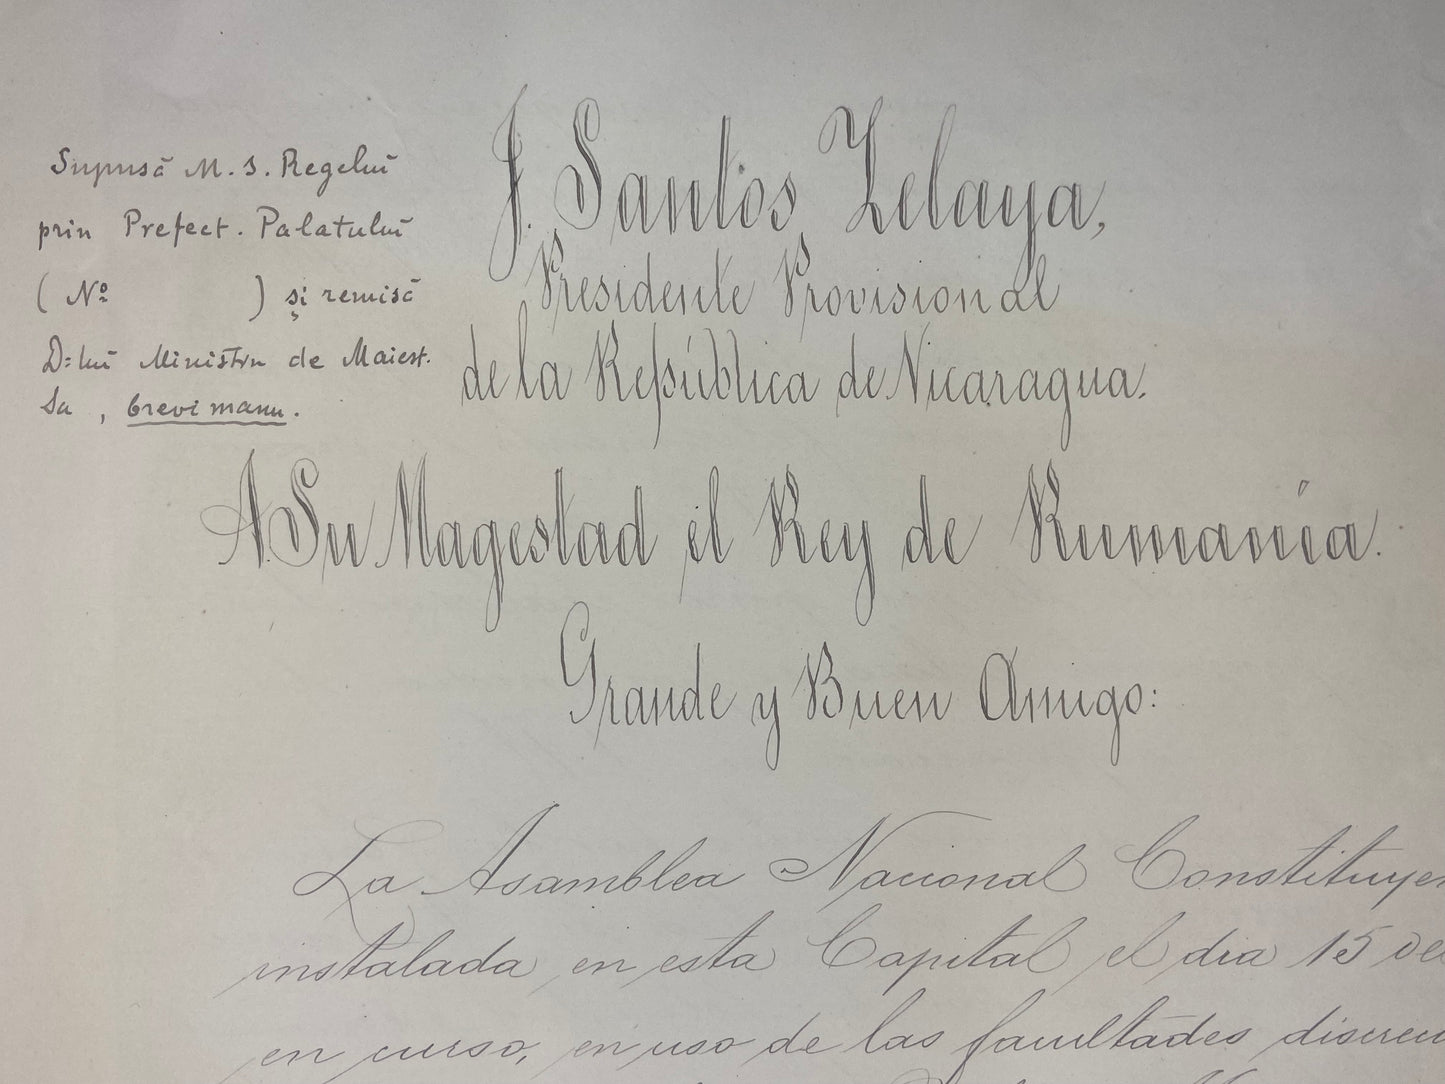 Supusă M. S. Regelui
prin Prefect. Palatului
( Nº ) și remisă
D=lui Ministru de Maiest.
Sa , brevi manu.
J. Santos Zelaya,
Presidente Provisional
de la República de Nicaragua.
A Su Magestad el Rey de Rumanía.
Grande y Buen Amigo:
La Asamblea Nacional Constituyen
instalada en esta Capital el dia 15 del
en curso, en uso de las facultades discreci